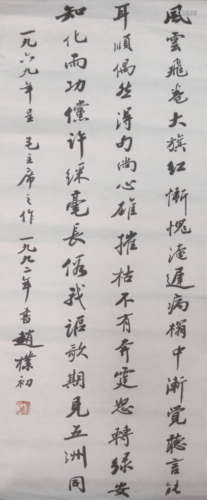 風雲飛卷大旗紅慚愧淹遲病榻中漸覺聽言能
耳順偶然得句尚心雄摧枯不有奔霆怒轉綠安
知化雨功儻許綵毫長假我謳歌期見五洲同
一九六九年呈毛主席之作一九九二年書趙樸初